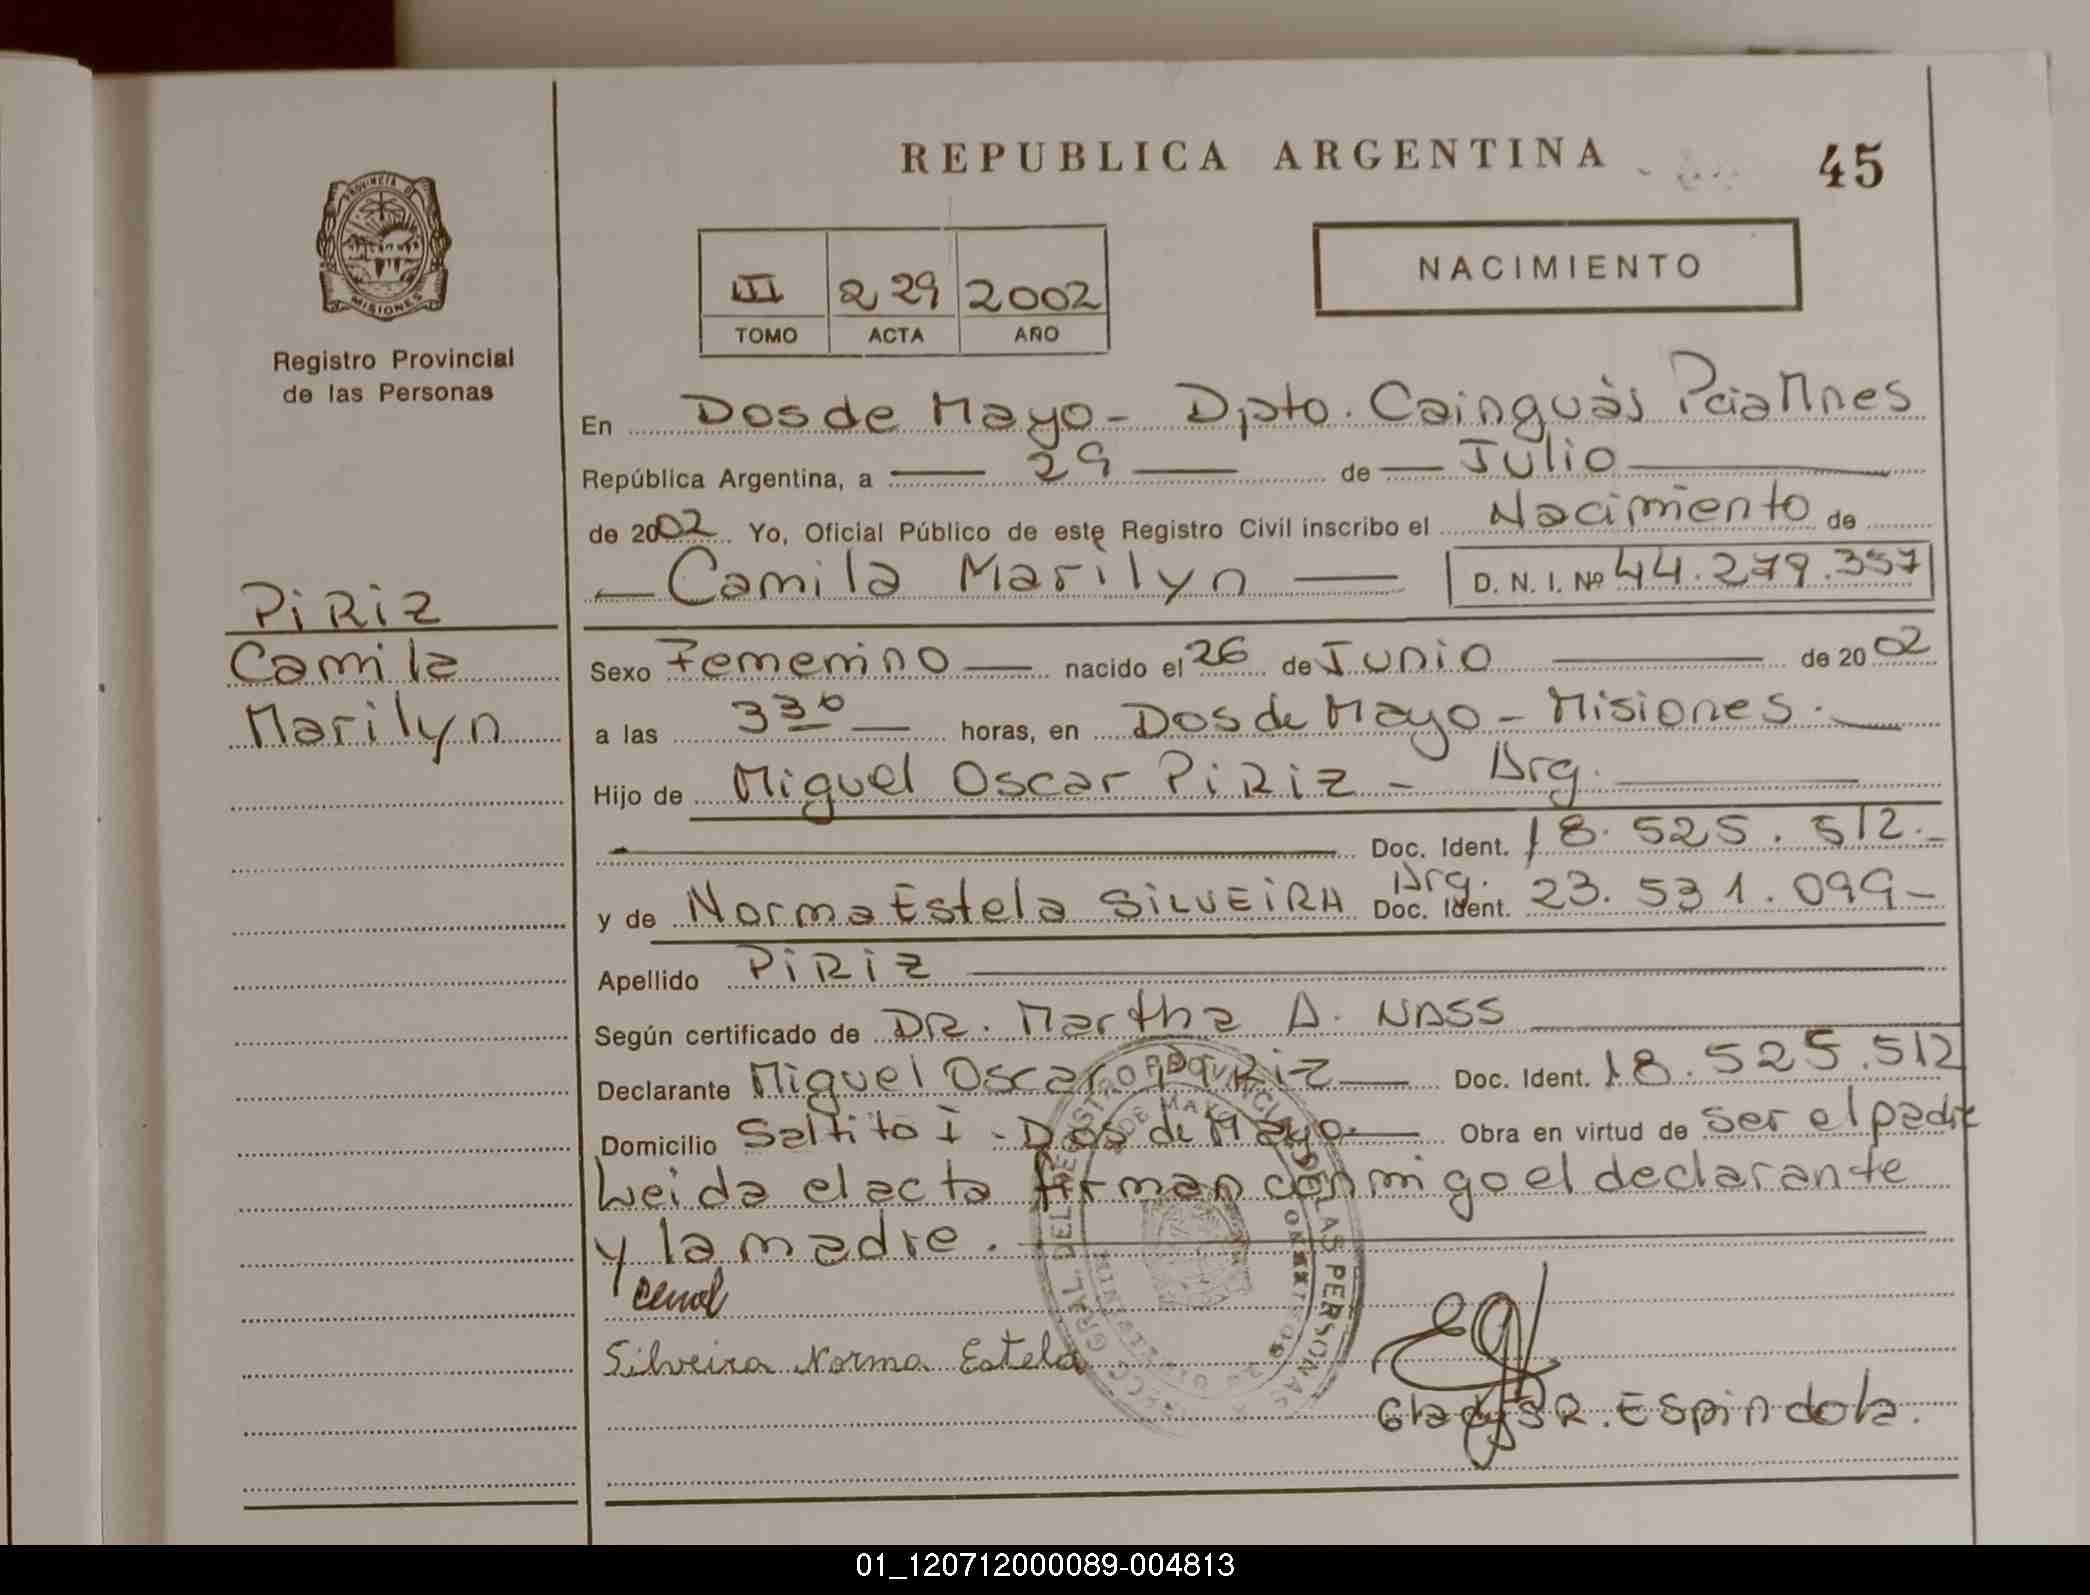 REPUBLICA ARGENTINA
45
PROVINCIA DE
MISIONES
Registro Provincial
de las Personas
III 229 2002
TOMO ACTA AÑO
NACIMIENTO
En Dos de Mayo - Dpto. Cainguás Pcia Mnes
República Argentina, a 29 de Julio
de 2002 Yo, Oficial Público de este Registro Civil inscribo el Nacimiento de
Camila Marilyn D. N. I. Nº 44.279.357
PiRiz
Camila
Marilyn
Sexo Femenino nacido el 26 de Junio de 2002
a las 330 horas, en Dos de Mayo - Misiones.
Hijo de Miguel Oscar PiRiz - Arg.
Doc. Ident. 18.525.512.-
Arg.
y de Norma Estela SiLVEiRA Doc. Ident. 23.531.099-
Apellido PiRiz
Según certificado de DR. Martha A. NASS
Declarante Miguel Oscar PiRiz Doc. Ident. 18.525.512
Domicilio Saltito I - Dos de Mayo. Obra en virtud de ser el padre
Leida el acta firman conmigo el declarante
y la madre.
Silveira Norma Estela
Gladys R. Espindola.
01_120712000089-004813